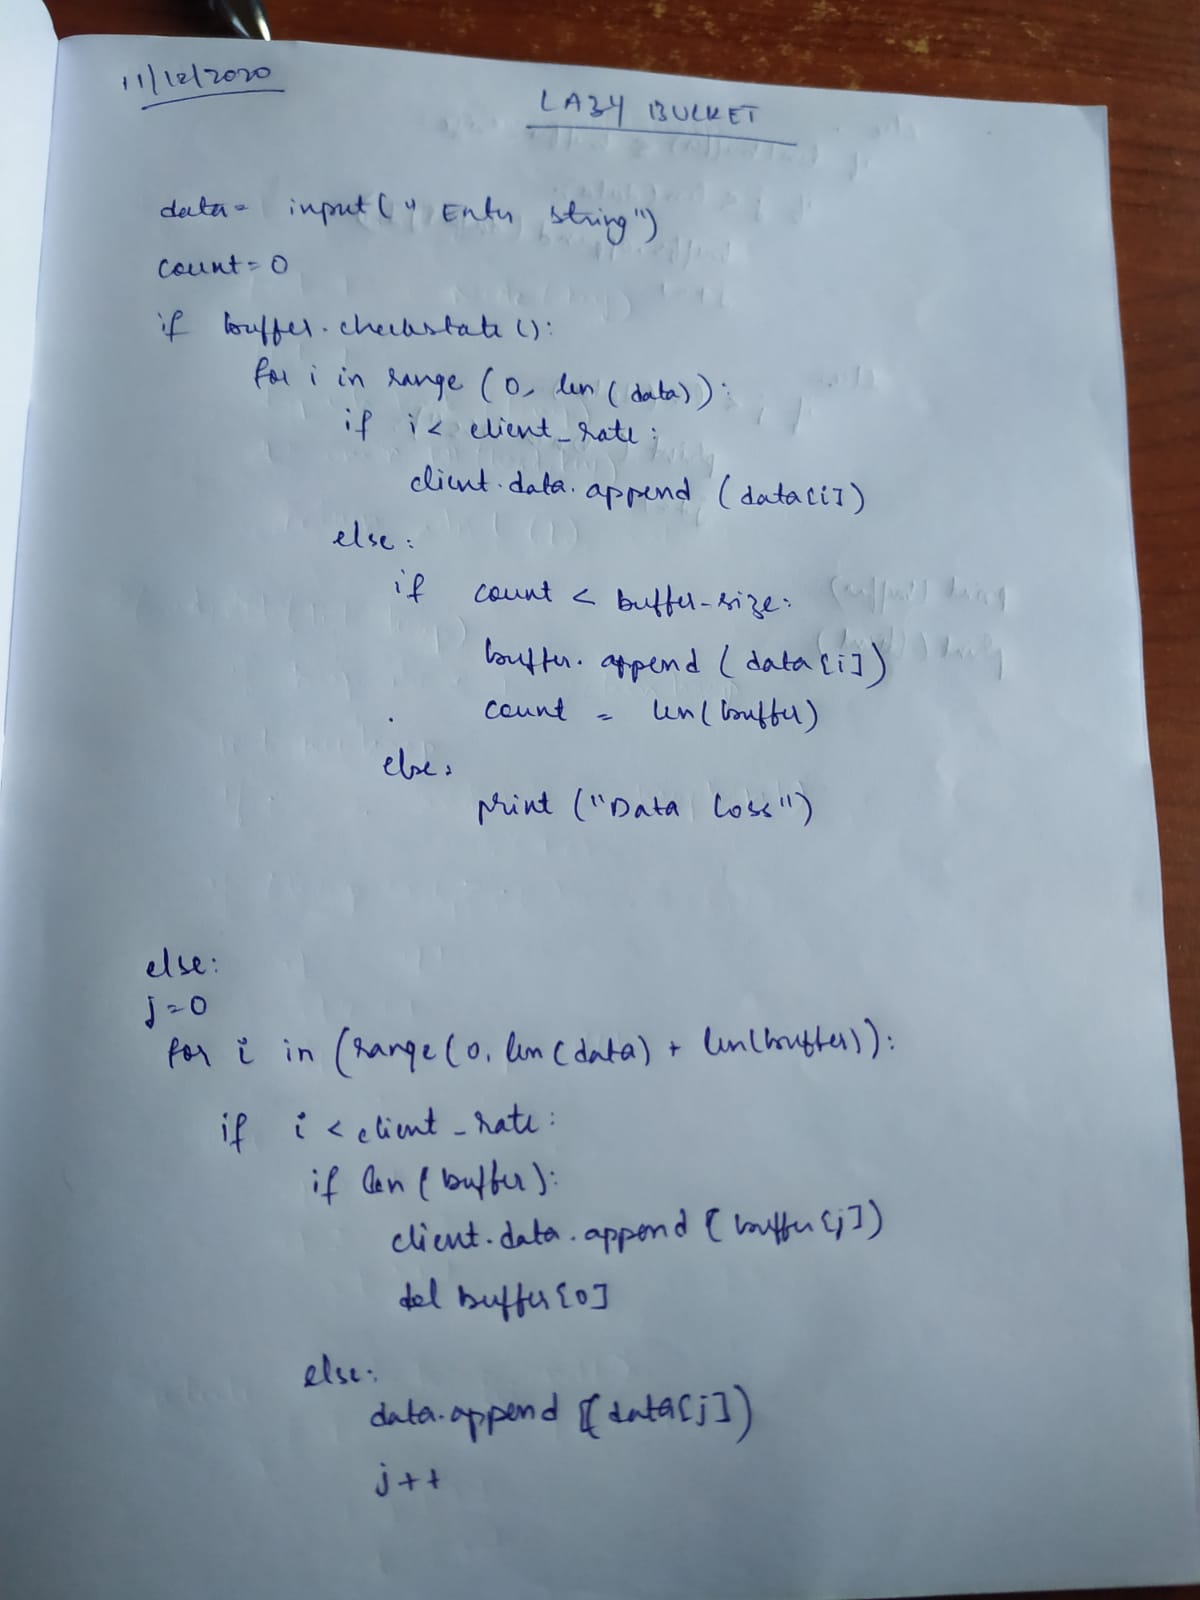 11/12/2020
LAZY BUCKET
data= input(" Enter string")
count=0
if buffer.checkstate():
for i in range (0, len(data)):
if i< client_rate:
client.data.append (data[i])
else:
if count < buffer-size:
buffer.append (data[i])
count = len(buffer)
else:
print ("Data Loss")
else:
j=0
for i in (range(0, len(data) + len(buffer)):
if i < client_rate:
if len(buffer):
client.data.append [buffer[j])
del buffer[0]
else:
data.append [data[j])
j++